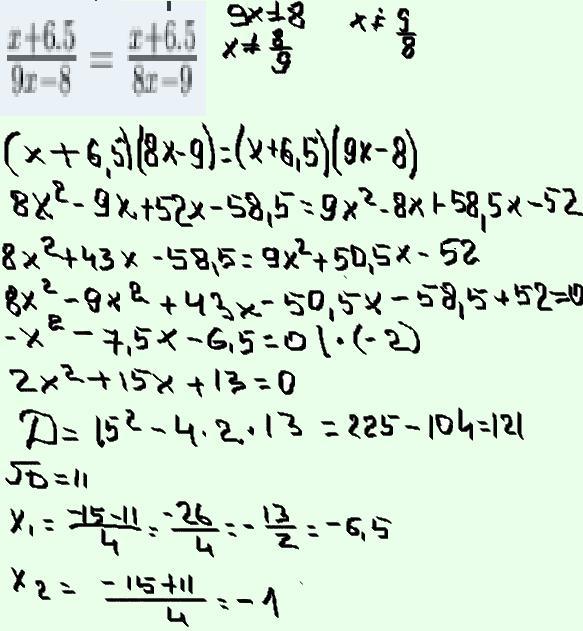 x+6.5/9x−8 = x+6.5/8x−9
9x≠8 x≠9/8
x≠8/9
(x+6,5)(8x-9)=(x+6,5)(9x-8)
8x²-9x+52x-58,5=9x²-8x+58,5x-52
8x²+43x-58,5=9x²+50,5x-52
8x²-9x²+43x-50,5x-58,5+52=0
-x²-7,5x-6,5=0 |·(-2)
2x²+15x+13=0
D=15²-4·2·13=225-104=121
√D=11
x₁=-15-11/4=-26/4=-13/2=-6,5
x₂=-15+11/4=-1